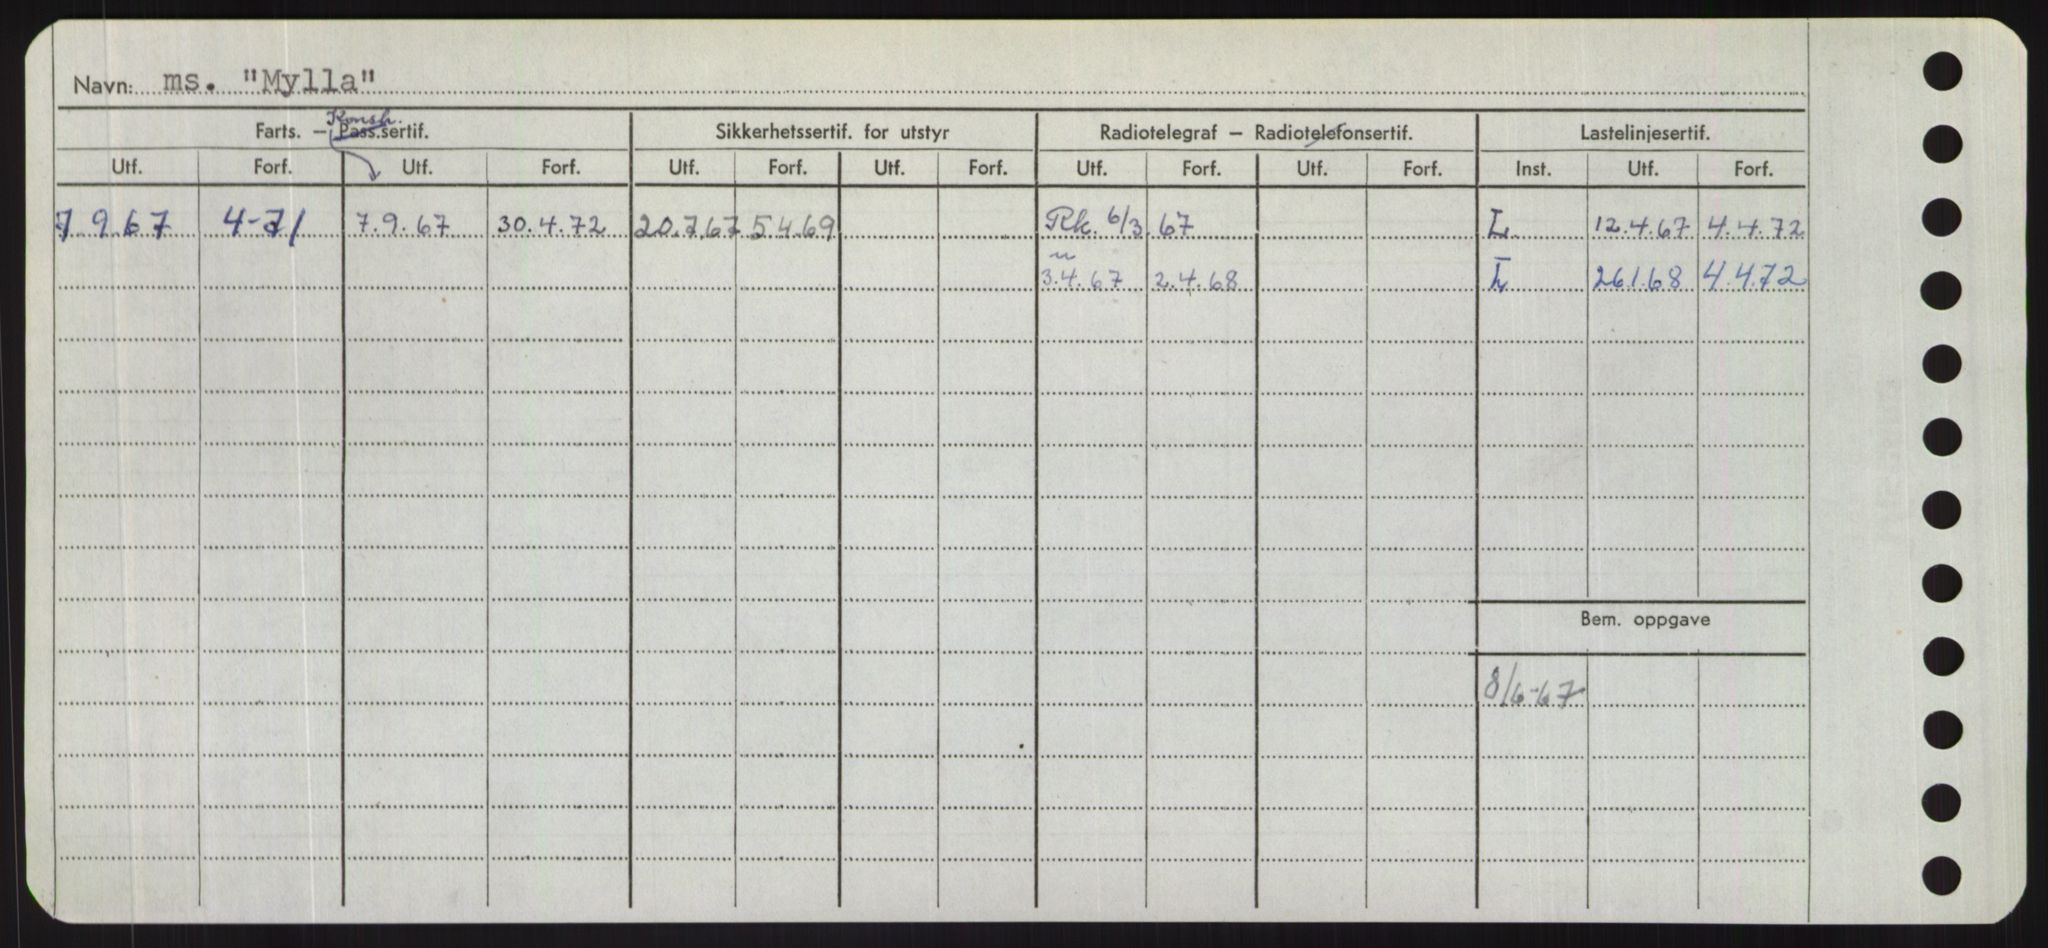 Navn: ms. "Mylla"
Konstr.
Farts. – Pass.sertif. Sikkerhetssertif. for utstyr Radiotelegraf – Radiotelefonsertif. Lastelinjesertif.
Utf. Forf. Utf. Forf. Utf. Forf. Utf. Forf. Utf. Forf. Utf. Forf. Inst. Utf. Forf.
7.9.67 4-71 7.9.67 30.4.72 20.7.67 5.4.69 Rk. 6/3.67 L 12.4.67 4.4.72
3.4.67 2.4.68 L 26.1.68 4.4.72
Bem. oppgave
8/6-67